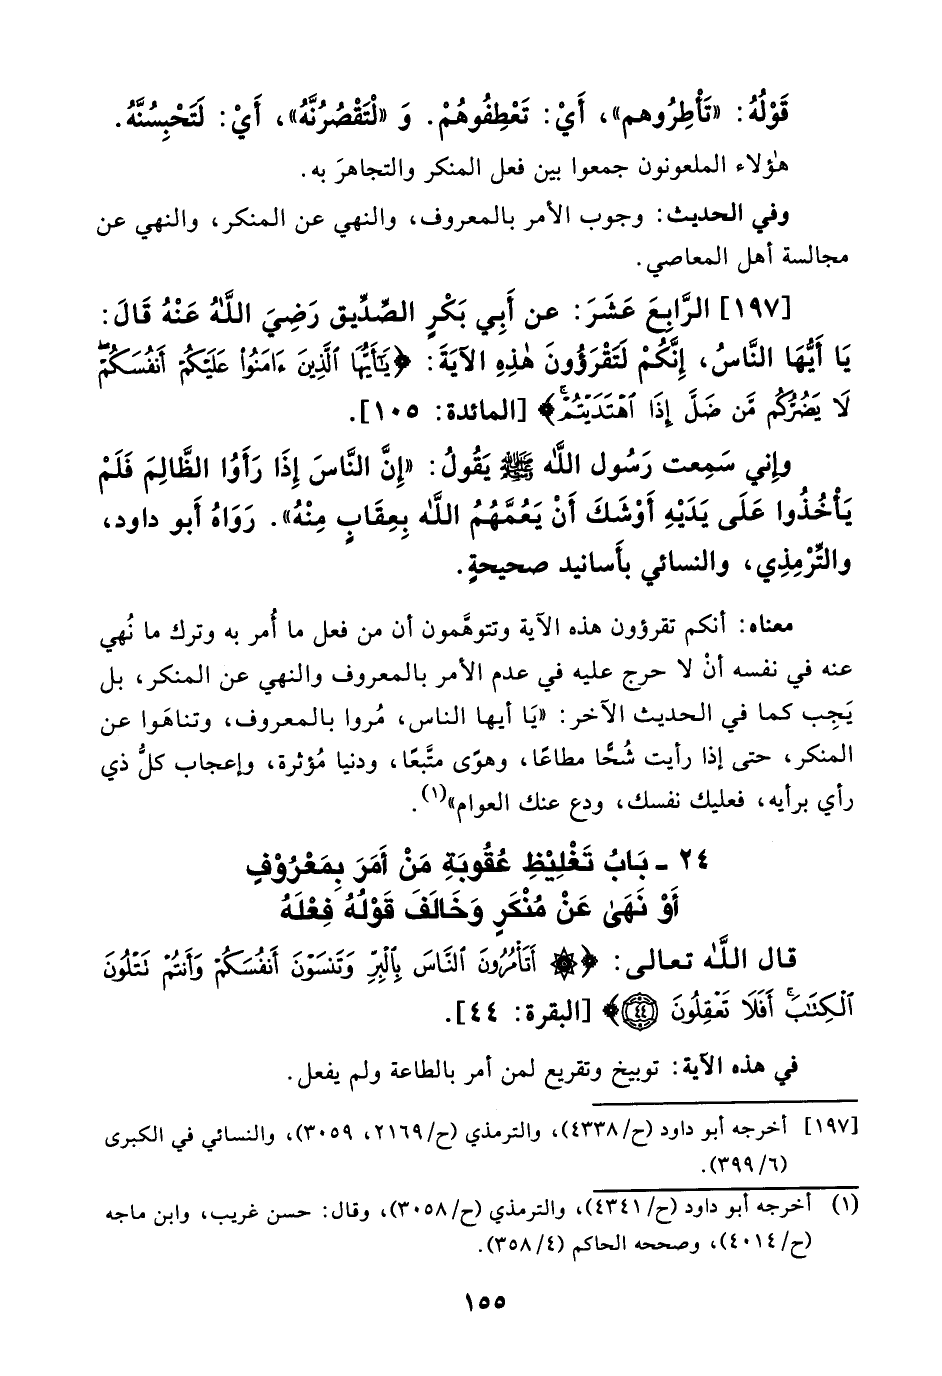 قَوْلُهُ: «تَأْطِرُوهم»، أَيْ: تَعْطِفُوهُمْ. وَ «لْتَقْصُرُنَّهُ»، أَيْ: لَتَحْبِسُنَّهُ.
هٰؤلاء الملعونون جمعوا بين فعل المنكر والتجاهرَ به.
وفي الحديث: وجوب الأمر بالمعروف، والنهي عن المنكر، والنهي عن
مجالسة أهل المعاصي.
[١٩٧] الرَّابِعَ عَشَرَ: عن أَبِي بَكْرٍ الصِّدِّيق رَضِيَ اللَّهُ عَنْهُ قَالَ:
يَا أَيُّهَا النَّاسُ، إِنَّكُمْ لَتَقْرَؤُونَ هٰذِهِ الآيَةَ: ﴿يَٰٓأَيُّهَا ٱلَّذِينَ ءَامَنُوا۟ عَلَيْكُمْ أَنفُسَكُمْۖ
لَا يَضُرُّكُم مَّن ضَلَّ إِذَا ٱهْتَدَيْتُمْۚ﴾ [المائدة: ١٠٥].
وإني سَمِعت رَسُول اللَّه ﷺ يَقُولُ: «إِنَّ النَّاسَ إِذَا رَأَوُا الظَّالِمَ فَلَمْ
يَأْخُذُوا عَلَى يَدَيْهِ أَوْشَكَ أَنْ يَعُمَّهُمُ اللَّه بِعِقَابٍ مِنْهُ». رَوَاهُ أبو داود،
والتِّرْمِذِي، والنسائي بأَسانيد صحيحةٍ.
معناه: أنكم تقرؤون هذه الآية وتتوهَّمون أن من فعل ما أُمر به وترك ما نُهي
عنه في نفسه أنْ لا حرج عليه في عدم الأمر بالمعروف والنهي عن المنكر، بل
يَجِب كما في الحديث الآخر: «يَا أيها الناس، مُروا بالمعروف، وتناهَوا عن
المنكر، حتى إذا رأيت شُحًّا مطاعًا، وهوًى متَّبعًا، ودنيا مُؤثرة، وإعجاب كلُّ ذي
رأي برأيه، فعليك نفسك، ودع عنك العوام»(١).
٢٤ - بَابُ تَغْلِيْظِ عُقُوبَةِ مَنْ أَمَرَ بِمَعْرُوْفٍ
أَوْ نَهَىٰ عَنْ مُنْكَرٍ وَخَالَفَ قَوْلُهُ فِعْلَهُ
قال اللَّه تعالى: ﴿۞ أَتَأْمُرُونَ ٱلنَّاسَ بِٱلْبِرِّ وَتَنسَوْنَ أَنفُسَكُمْ وَأَنتُمْ تَتْلُونَ
ٱلْكِتَٰبَۚ أَفَلَا تَعْقِلُونَ ٤٤﴾ [البقرة: ٤٤].
في هذه الآية: توبيخ وتقريع لمن أمر بالطاعة ولم يفعل.
[١٩٧] أخرجه أبو داود (ح/٤٣٣٨)، والترمذي (ح/٢١٦٩، ٣٠٥٩)، والنسائي في الكبرى
(٦/ ٣٩٩).
(١) أخرجه أبو داود (ح/ ٤٣٤١)، والترمذي (ح/٣٠٥٨)، وقال: حسن غريب، وابن ماجه
(ح/ ٤٠١٤)، وصححه الحاكم (٤/ ٣٥٨).
١٥٥